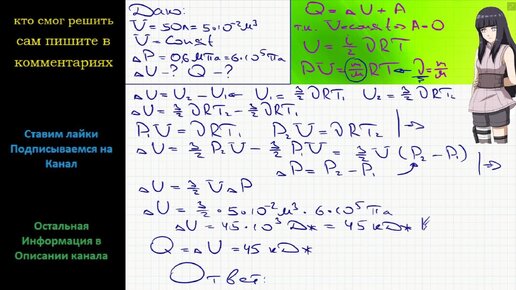 кто смог решить
сам пишите в
комментариях
Ставим лайки
Подписываемся на
Канал
Остальная
Информация в
Описании канала
Дано:
V = 50л = 5·10⁻² м³
V = Const
ΔP = 0,6 МПа = 6·10⁵ Па
ΔU - ? Q - ?
Q = ΔU + A
т.к. V = const ⇒ A = 0
U = 3/2 νRT
PV = m/M RT ← ν = m/M
ΔU = U₂ - U₁ ← U₁ = 3/2 νRT₁ U₂ = 3/2 νRT₂
ΔU = 3/2 νRT₂ - 3/2 νRT₁
P₁V = νRT₁ P₂V = νRT₂ | ⇒
ΔU = 3/2 P₂V - 3/2 P₁V = 3/2 V (P₂ - P₁)
ΔP = P₂ - P₁ | ⇒
ΔU = 3/2 VΔP
ΔU = 3/2 · 5·10⁻² м³ · 6·10⁵ Па
ΔU = 45·10³ Дж = 45 кДж
Q = ΔU = 45 кДж
Ответ: